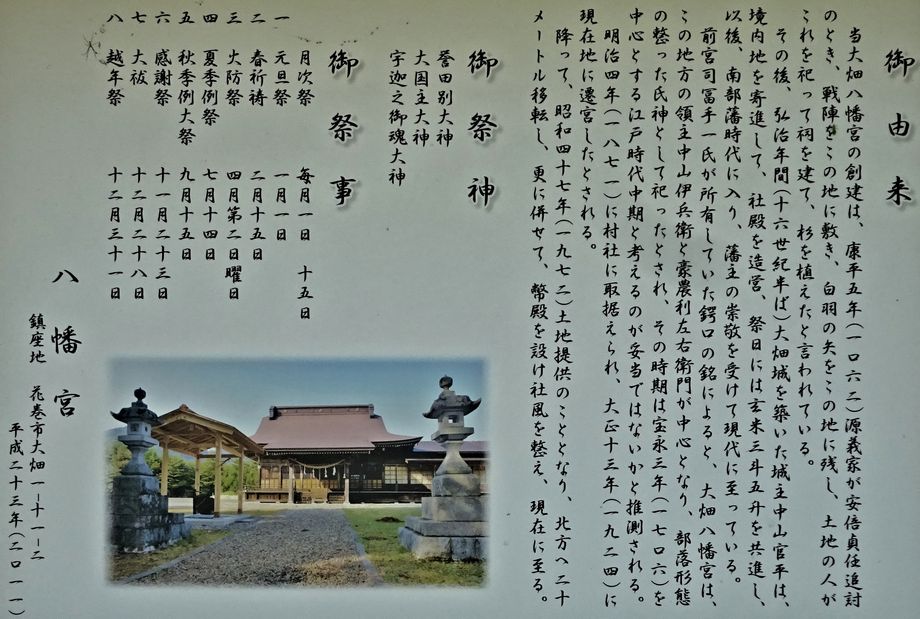 御由来
当大畑八幡宮の創建は、康平五年(一〇六二)源義家が安倍貞任追討
のとき、戦陣をこの地に敷き、白羽の矢をこの地に残し、土地の人が
これを祀って祠を建て、杉を植えたと言われている。
その後、弘治年間(十六世紀半ば)大畑城を築いた城主中山官平は、
境内地を寄進して、社殿を造営、祭日には玄米三斗五升を共進し、
以後、南部藩時代に入り、藩主の崇敬を受けて現代に至っている。
前宮司冨手一氏が所有していた鍔口の銘によると、大畑八幡宮は、
この地方の領主中山伊兵衛と豪農利左右衛門が中心となり、部落形態
の整った氏神として祀ったとされ、その時期は宝永三年(一七〇六)を
中心とする江戸時代中期と考えるのが妥当ではないかと推測される。
明治四年(一八七一)に村社に取据えられ、大正十三年(一九二四)に
現在地に遷宮したとされる。
降って、昭和四十七年(一九七二)土地提供のこととなり、北方へ二十
メートル移転し、更に併せて、幣殿を設け社風を整え、現在に至る。
御祭神
誉田別大神
大国主大神
宇迦之御魂大神
御祭事
月次祭 毎月一日 十五日
一 元旦祭 一月一日
二 春祈祷 二月十五日
三 火防祭 四月第二日曜日
四 夏季例祭 七月十四日
五 秋季例大祭 九月十五日
六 感謝祭 十一月二十三日
七 大祓 十二月二十八日
八 越年祭 十二月三十一日
八幡宮
鎮座地 花巻市大畑一ー十一ー二
平成二十三年(二〇一一)